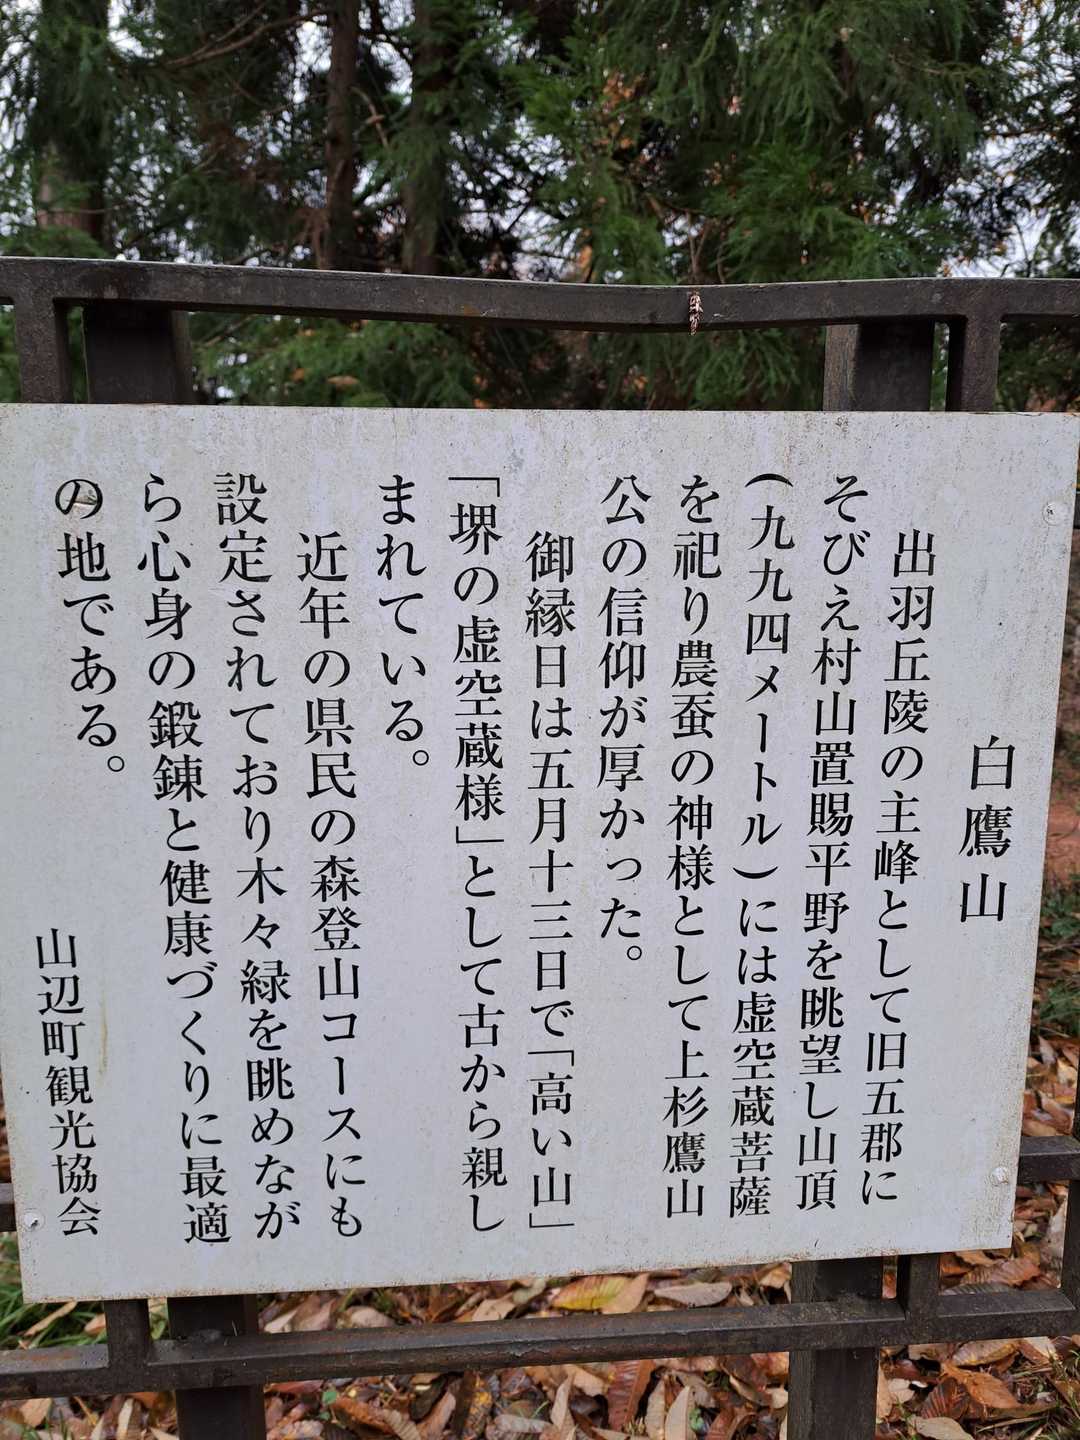 白鷹山
出羽丘陵の主峰として旧五郡に
そびえ村山置賜平野を眺望し山頂
(九九四メートル)には虚空蔵菩薩
を祀り農蚕の神様として上杉鷹山
公の信仰が厚かった。
御縁日は五月十三日で「高い山」
「堺の虚空蔵様」として古から親し
まれている。
近年の県民の森登山コースにも
設定されており木々緑を眺めなが
ら心身の鍛錬と健康づくりに最適
の地である。
山辺町観光協会